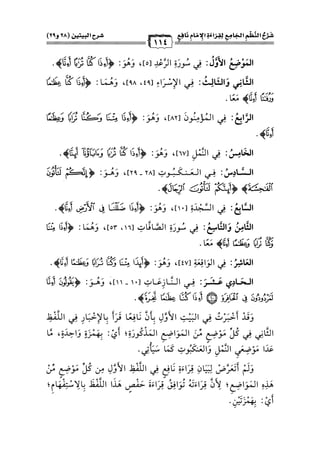 شرح البيتين (٢٨ و٢٩)
١١٤
شَرْحُ النَّظْمِ الجَامِعِ لِقِرَاءَةِ الإِمَامِ نَافِعٍ
المَوْضِعُ الأَوَّلُ: فِي سُورَةِ الرَّعْدِ [٥]، وَهُوَ: ﴿أَءِذَا كُنَّا تُرَٰبًا أَءِنَّا﴾.
الثَّانِي وَالثَّالِثُ: فِي الإِسْرَاءِ [٤٩، ٩٨]، وَهُمَا: ﴿أَءِذَا كُنَّا عِظَٰمًا
وَرُفَٰتًا أَءِنَّا﴾ مَعًا.
الرَّابِعُ: فِي المُؤْمِنُونَ [٨٢]، وَهُوَ: ﴿أَءِذَا مِتْنَا وَكُنَّا تُرَابًا وَعِظَٰمًا
أَءِنَّا﴾.
الخَامِسُ: فِي النَّمْلِ [٦٧]، وَهُوَ: ﴿أَءِذَا كُنَّا تُرَٰبًا وَءَابَآؤُنَآ أَئِنَّا﴾.
السَّادِسُ: فِي العَنكَبُوتِ [٢٨ - ٢٩]، وَهُوَ: ﴿إِنَّكُمْ لَتَأْتُونَ
الْفَٰحِشَةَ﴾ ﴿أَئِنَّكُمْ لَتَأْتُونَ الرِّجَالَ﴾.
السَّابِعُ: فِي السَّجْدَةِ [١٠]، وَهُوَ: ﴿أَءِذَا ضَلَلْنَا فِي الْأَرْضِ أَءِنَّا﴾.
الثَّامِنُ وَالتَّاسِعُ: فِي سُورَةِ الصَّافَّاتِ [١٦، ٥٣]، وَهُمَا: ﴿أَءِذَا مِتْنَا
وَكُنَّا تُرَابًا وَعِظَٰمًا أَءِنَّا﴾ مَعًا.
العَاشِرُ: فِي الوَاقِعَةِ [٤٧]، وَهُوَ: ﴿أَئِذَا مِتْنَا وَكُنَّا تُرَابًا وَعِظَٰمًا أَءِنَّا﴾.
الحَادِي عَشَرَ: فِي النَّازِعَاتِ [١٠ - ١١]، وَهُوَ: ﴿يَقُولُونَ أَءِنَّا
لَمَرْدُودُونَ فِي الْحَافِرَةِ ۝ أَءِذَا كُنَّا عِظَٰمًا نَّخِرَةً﴾.
وَقَدْ أَخْبَرْتُ فِي البَيْتِ الأَوَّلِ بِأَنَّ نَافِعًا قَرَأَ بِالإِخْبَارِ فِي اللَّفْظِ
الثَّانِي فِي كُلِّ مَوْضِعٍ مِّنَ المَوَاضِعِ المَذْكُورَةِ؛ أَيْ: بِهَمْزَةٍ وَاحِدَةٍ، مَّا
عَدَا مَوْضِعَيِ النَّمْلِ وَالعَنكَبُوتِ كَمَا سَيَأْتِي.
وَلَمْ أَتَعَرَّضْ لِبَيَانِ قِرَاءَةِ نَافِعٍ فِي اللَّفْظِ الأَوَّلِ مِن كُلِّ مَوْضِعٍ مِّنْ
هَذِهِ المَوَاضِعِ؛ لِأَنَّ قِرَاءَتَهُ تُوَافِقُ قِرَاءَةَ حَفْصٍ هَذَا اللَّفْظَ بِالِاسْتِفْهَامِ؛
أَيْ: بِهَمْزَتَيْنِ.